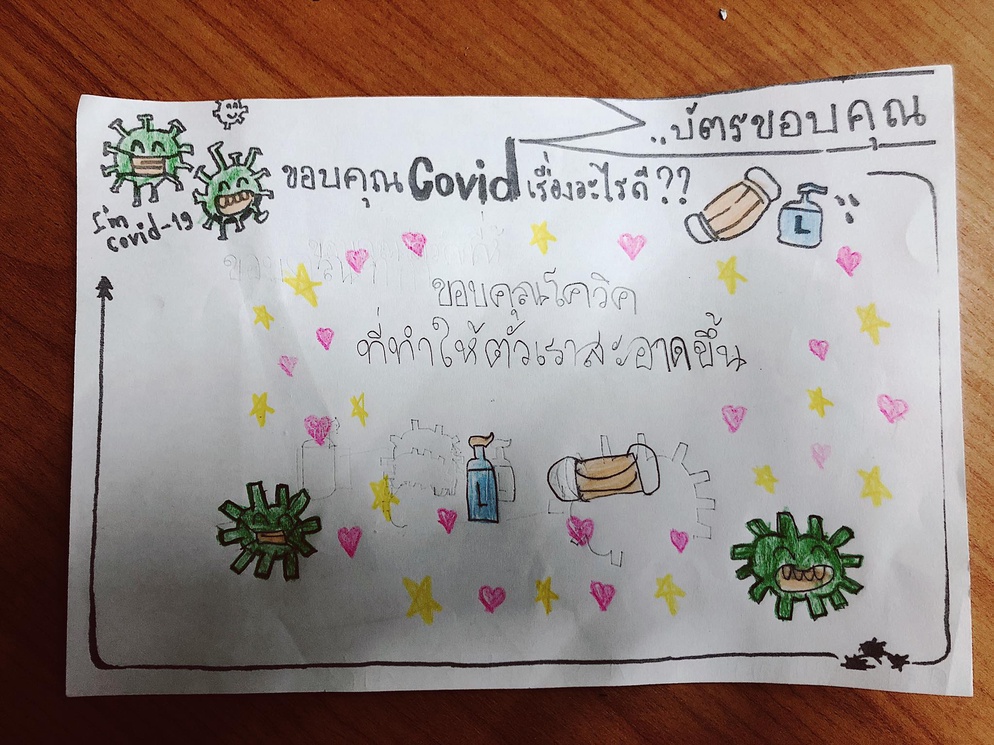 ..บัตรขอบคุณ
ขอบคุณ Covid เรื่องอะไรดี??
I'm
covid-19
L
ขอบคุณโควิด
ที่ทำให้ตัวเราสะอาดขึ้น
L